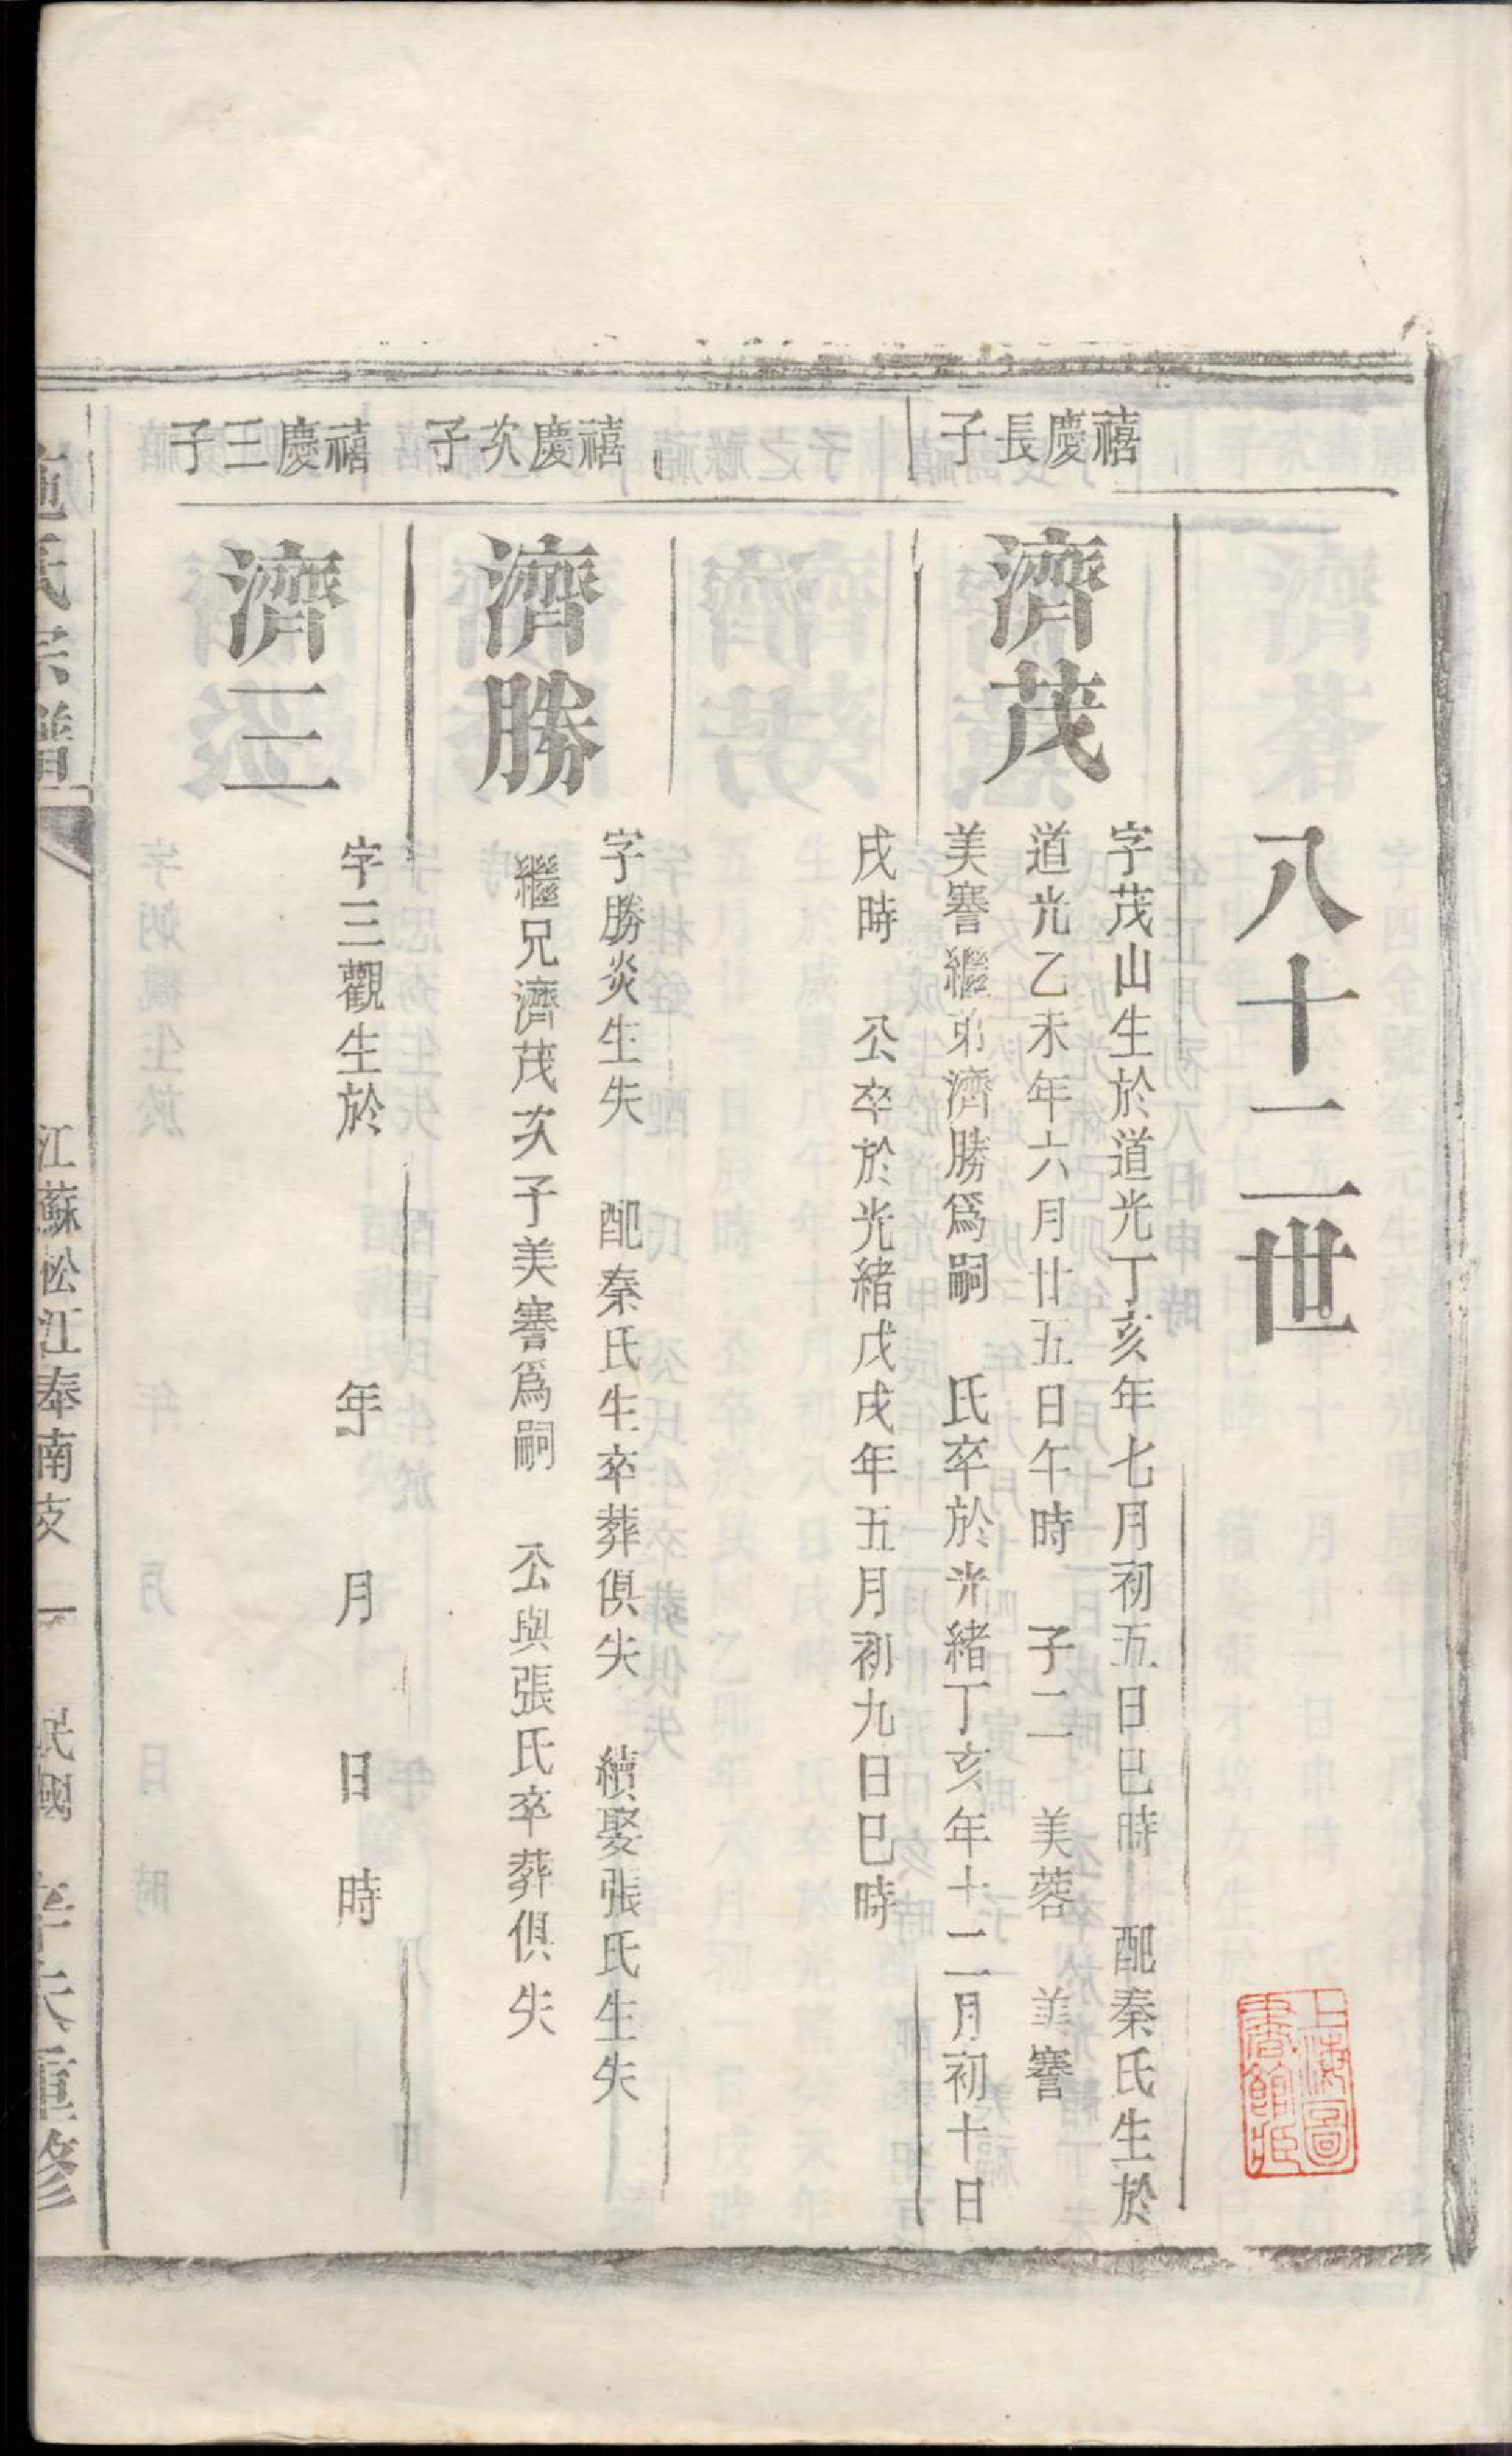 八十二世
上海圖書館藏
禧慶長子
濟茂
字茂山生於道光丁亥年七月初五日巳時 配秦氏生於
道光乙未年六月廿五日午時 子二 美蓉 美謇
美謇繼弟濟勝爲嗣 氏卒於光緒丁亥年十二月初十日
戌時 公卒於光緒戊戌年五月初九日巳時
禧慶次子
濟勝
字勝炎生失 配秦氏生卒葬俱失 續娶張氏生失
繼兄濟茂次子美謇爲嗣 公與張氏卒葬俱失
禧慶三子
濟三
字三觀生於 年 月 日 時
施氏宗譜
江蘇松江奉南支 民國 重修